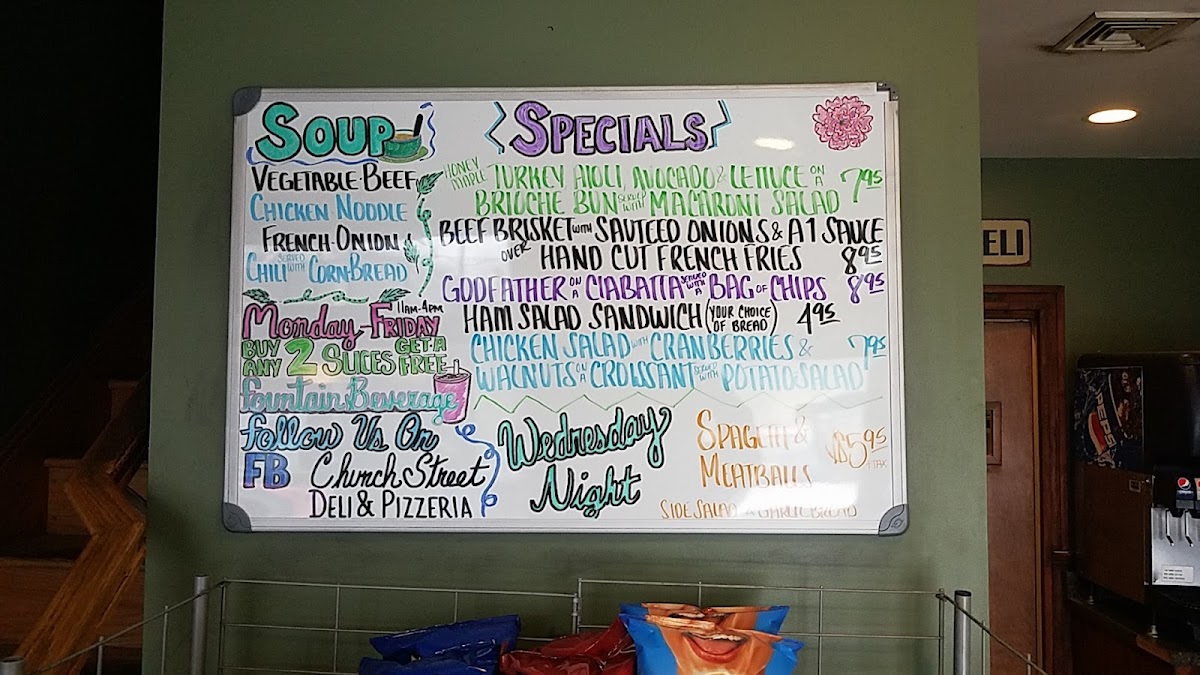 SOUP
VEGETABLE-BEEF
CHICKEN NOODLE
FRENCH-ONION
CHILI SERVED WITH CORNBREAD
11AM-4PM
MONDAY-FRIDAY
BUY ANY 2 SLICES GET A FREE
Fountain Beverage
Follow Us On
FB Church Street
DELI & PIZZERIA
SPECIALS
HONEY MAPLE TURKEY AIOLI, AVOCADO & LETTUCE ON A
BRIOCHE BUN SERVED WITH MACARONI SALAD 7.95
BEEF BRISKET WITH SAUTEED ONIONS & A1 SAUCE
OVER HAND CUT FRENCH FRIES 8.95
GODFATHER ON A CIABATTA SERVED WITH A BAG OF CHIPS 8.95
HAM SALAD SANDWICH (YOUR CHOICE OF BREAD) 4.95
CHICKEN SALAD WITH CRANBERRIES & 7.95
WALNUTS ON A CROISSANT SERVED WITH POTATO SALAD
Wednesday
Night
SPAGETTI &
MEATBALLS
$5.95
+TAX
SIDE SALAD & GARLIC BREAD
ELI
PEPSI